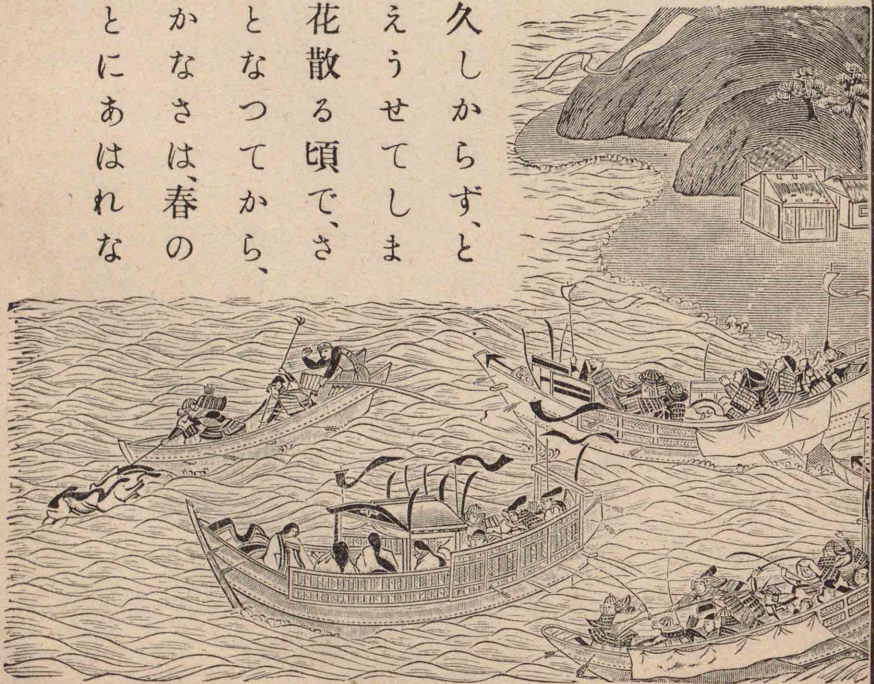 久しからず、と
えうせてしま
花散る頃で、さ
となつてから、
かなさは、春の
とにあはれな